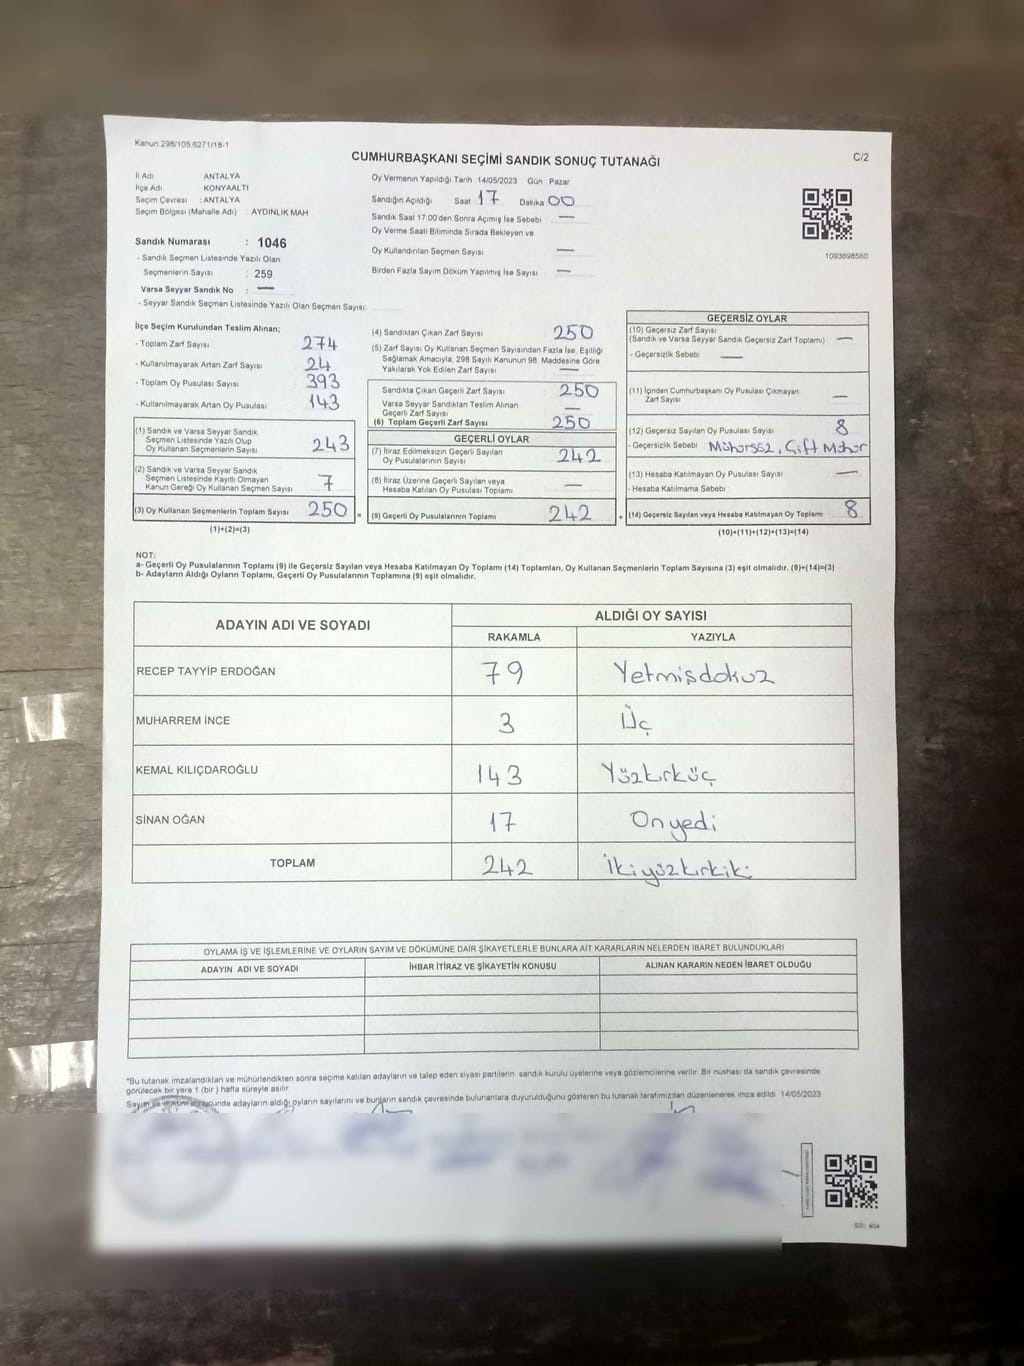 Kanun:298/105:6271/18-1
CUMHURBAŞKANI SEÇİMİ SANDIK SONUÇ TUTANAĞI
C/2
İl Adı ANTALYA
İlçe Adı KONYAALTI
Seçim Çevresi : ANTALYA
Seçim Bölgesi (Mahalle Adı) : AYDINLIK MAH
Sandık Numarası : 1046
- Sandık Seçmen Listesinde Yazılı Olan
Seçmenlerin Sayısı : 259
Varsa Seyyar Sandık No : —
- Seyyar Sandık Seçmen Listesinde Yazılı Olan Seçmen Sayısı:
Oy Vermenin Yapıldığı Tarih :14/05/2023 Gün : Pazar
Sandığın Açıldığı Saat 17 Dakika 00
Sandık Saat 17:00'den Sonra Açılmış İse Sebebi : —
Oy Verme Saati Bitiminde Sırada Bekleyen ve
Oy Kullandırılan Seçmen Sayısı —
Birden Fazla Sayım Döküm Yapılmış İse Sayısı : —
1093698560
İlçe Seçim Kurulundan Teslim Alınan;
- Toplam Zarf Sayısı : 274
- Kullanılmayarak Artan Zarf Sayısı : 24
- Toplam Oy Pusulası Sayısı : 393
- Kullanılmayarak Artan Oy Pusulası : 143
(1) Sandık ve Varsa Seyyar Sandık
Seçmen Listesinde Yazılı Olup
Oy Kullanan Seçmenlerin Sayısı : 243
(2) Sandık ve Varsa Seyyar Sandık
Seçmen Listesinde Kayıtlı Olmayan
Kanun Gereği Oy Kullanan Seçmen Sayısı : 7
(3) Oy Kullanan Seçmenlerin Toplam Sayısı : 250
(1)+(2)=(3)
(4) Sandıktan Çıkan Zarf Sayısı 250
(5) Zarf Sayısı Oy Kullanan Seçmen Sayısından Fazla İse, Eşitliği
Sağlamak Amacıyla, 298 Sayılı Kanunun 98. Maddesine Göre
Yakılarak Yok Edilen Zarf Sayısı : —
Sandıkta Çıkan Geçerli Zarf Sayısı : 250
Varsa Seyyar Sandıktan Teslim Alınan
Geçerli Zarf Sayısı : —
(6) Toplam Geçerli Zarf Sayısı : 250
GEÇERLİ OYLAR
(7) İtiraz Edilmeksizin Geçerli Sayılan
Oy Pusulalarının Sayısı : 242
(8) İtiraz Üzerine Geçerli Sayılan veya
Hesaba Katılan Oy Pusulası Toplamı : —
= (9) Geçerli Oy Pusulalarının Toplamı : 242
GEÇERSİZ OYLAR
(10) Geçersiz Zarf Sayısı
(Sandık ve Varsa Seyyar Sandık Geçersiz Zarf Toplamı) : —
- Geçersizlik Sebebi : —
(11) İçinden Cumhurbaşkanı Oy Pusulası Çıkmayan
Zarf Sayısı : —
(12) Geçersiz Sayılan Oy Pusulası Sayısı : 8
- Geçersizlik Sebebi : Mühürsüz, Çift Mühür
(13) Hesaba Katılmayan Oy Pusulası Sayısı : —
- Hesaba Katılmama Sebebi :
+ (14) Geçersiz Sayılan veya Hesaba Katılmayan Oy Toplamı : 8
(10)+(11)+(12)+(13)=(14)
NOT:
a- Geçerli Oy Pusulalarının Toplamı (9) ile Geçersiz Sayılan veya Hesaba Katılmayan Oy Toplamı (14) Toplamları, Oy Kullanan Seçmenlerin Toplam Sayısına (3) eşit olmalıdır. (9)+(14)=(3)
b- Adayların Aldığı Oyların Toplamı, Geçerli Oy Pusulalarının Toplamına (9) eşit olmalıdır.
ADAYIN ADI VE SOYADI ALDIĞI OY SAYISI
RAKAMLA YAZIYLA
RECEP TAYYİP ERDOĞAN 79 Yetmişdokuz
MUHARREM İNCE 3 Üç
KEMAL KILIÇDAROĞLU 143 Yüzkırküç
SİNAN OĞAN 17 Onyedi
TOPLAM 242 İkiyüzkırkiki
OYLAMA İŞ VE İŞLEMLERİNE VE OYLARIN SAYIM VE DÖKÜMÜNE DAİR ŞİKAYETLERLE BUNLARA AİT KARARLARIN NELERDEN İBARET BULUNDUKLARI
ADAYIN ADI VE SOYADI İHBAR İTİRAZ VE ŞİKAYETİN KONUSU ALINAN KARARIN NEDEN İBARET OLDUĞU
*Bu tutanak imzalandıktan ve mühürlendikten sonra seçime katılan adayların ve talep eden siyasi partilerin sandık kurulu üyelerine veya gözlemcilerine verilir. Bir nüshası da sandık çevresinde
görülecek bir yere 1 (bir ) hafta süreyle asılır.
Sayım ve döküm sonucunda adayların aldığı oyların sayılarını ve bunların sandık çevresinde bulunanlara duyurulduğunu gösteren bu tutanak tarafımızdan düzenlenerek imza edildi. 14/05/2023